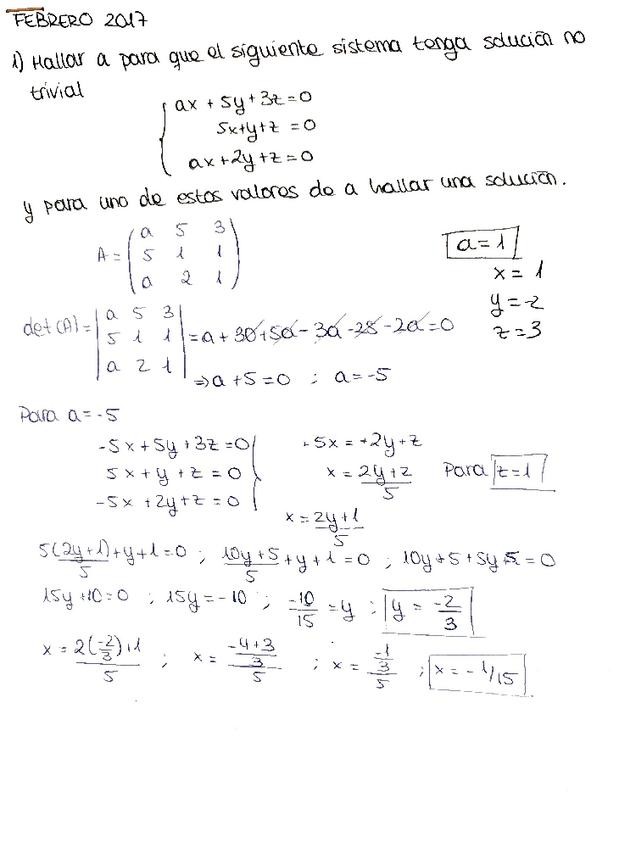 FEBRERO 2017
1) Hallar a para que el siguiente sistema tenga solución no
trivial
ax + 5y + 3z = 0
5x + y + z = 0
ax + 2y + z = 0
y para uno de estos valores de a hallar una solución.
A = ( a 5 3
5 1 1
a 2 1 )
a = 1
x = 1
y = -2
z = 3
det(A) = | a 5 3
5 1 1
a 2 1 | = a + 30 + 5a - 3a - 25 - 2a = 0
⇒ a + 5 = 0 ; a = -5
Para a = -5
-5x + 5y + 3z = 0
5x + y + z = 0
-5x + 2y + z = 0
+5x = +2y + z
x = (2y + z)/5 Para z = 1
x = (2y + 1)/5
5(2y + 1)/5 + y + 1 = 0 ; (10y + 5)/5 + y + 1 = 0 ; 10y + 5 + 5y + 5 = 0
15y + 10 = 0 ; 15y = -10 ; -10/15 = y ; y = -2/3
x = (2(-2/3) + 1)/5 ; x = ((-4 + 3)/3)/5 ; x = (-1/3)/5 ; x = -1/15